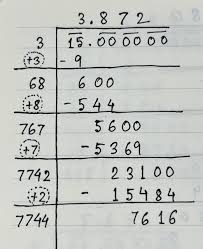 3.872
3 15.000000
+3 - 9
68 600
+8 - 544
767 5600
+7 - 5369
7742 23100
+2 - 15484
7744 7616